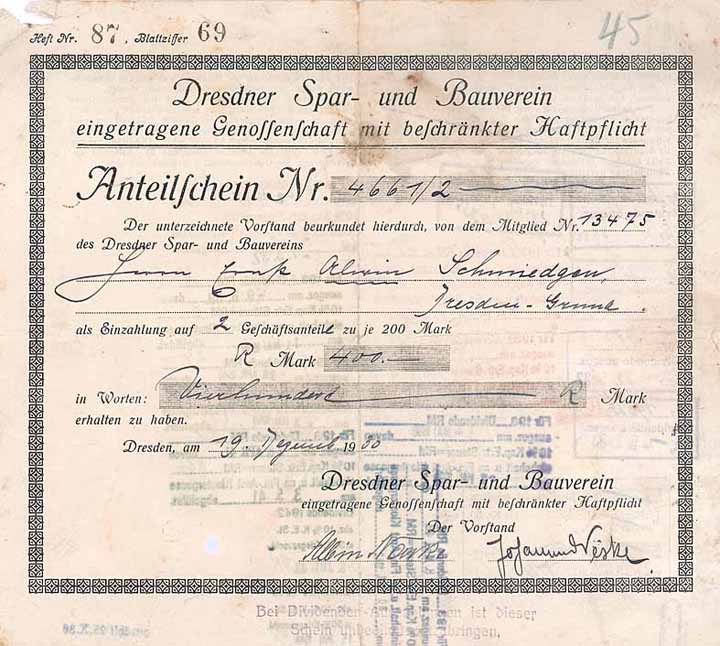 Heft Nr. 87, Blattziffer 69
45
Dresdner Spar- und Bauverein
eingetragene Genoſſenſchaft mit beſchränkter Haftpflicht
Anteilſchein Nr. 4661/2
Der unterzeichnete Vorſtand beurkundet hierdurch, von dem Mitglied Nr. 13475
des Dresdner Spar- und Bauvereins
Herrn Ernst Alwin Schmiedgen,
Dresden-Gruna
als Einzahlung auf 2 Geſchäftsanteile zu je 200 Mark
R Mark 400.-
in Worten: Vierhundert R Mark
erhalten zu haben.
Dresden, am 19. Dezemb 1930
Dresdner Spar- und Bauverein
eingetragene Genoſſenſchaft mit beſchränkter Haftpflicht
Der Vorſtand
Bei Dividenden- ist dieser
Schein